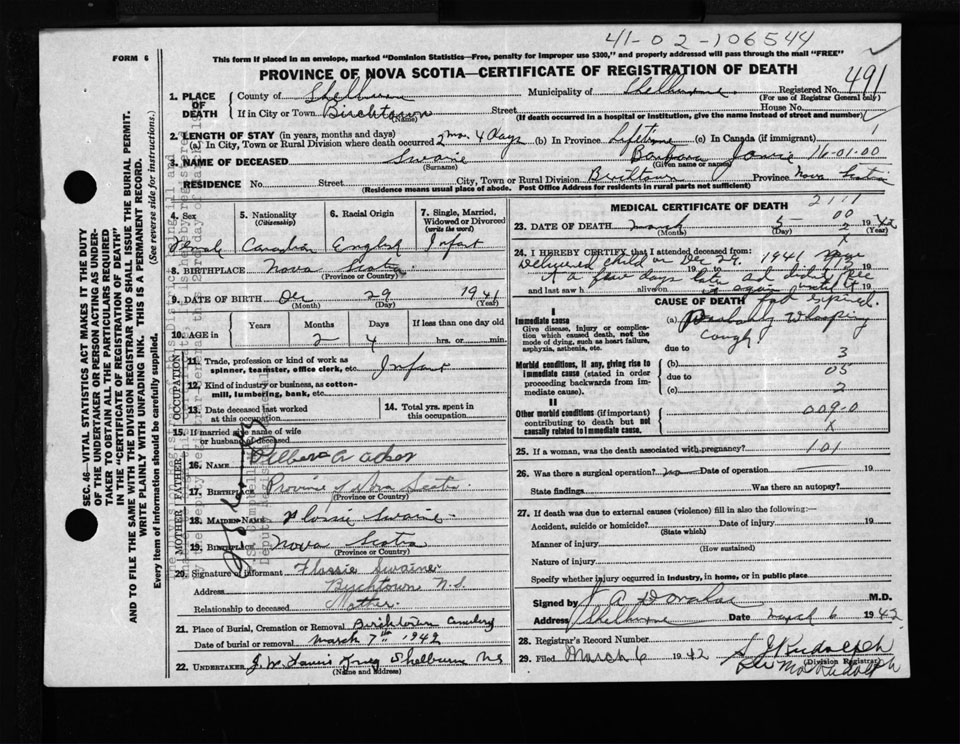 41-02-106544
FORM 6
This form if placed in an envelope, marked "Dominion Statistics—Free, penalty for improper use $300," and properly addressed will pass through the mail "FREE"
PROVINCE OF NOVA SCOTIA—CERTIFICATE OF REGISTRATION OF DEATH
1. PLACE OF DEATH
County of Shelburne Municipality of Shelburne Registered No. 491
(For use of Registrar General only)
If in City or Town Birchtown (Name) Street House No.
(If death occurred in a hospital or institution, give the name instead of street and number)
2. LENGTH OF STAY (in years, months and days)
(a) In City, Town or Rural Division where death occurred 2 mos 4 days (b) In Province Lifetime (c) In Canada (if immigrant)
3. NAME OF DECEASED Swaine Barbara 16-01-00
(Surname) (Given name or names)
RESIDENCE No. Street City, Town or Rural Division Birchtown Province Nova Scotia
(Residence means usual place of abode. Post Office Address for residents in rural parts not sufficient)
4. Sex Female
5. Nationality (Citizenship) Canadian
6. Racial Origin English
7. Single, Married, Widowed or Divorced (write the word) Infant
8. BIRTHPLACE Nova Scotia
(Province or Country)
9. DATE OF BIRTH Dec 29 1941
(Month) (Day) (Year)
10. AGE in Years Months Days If less than one day old
2 4 hrs. or min.
OCCUPATION
11. Trade, profession or kind of work as spinner, teamster, office clerk, etc. Infant
12. Kind of industry or business, as cotton-mill, lumbering, bank, etc.
13. Date deceased last worked at this occupation
14. Total yrs. spent in this occupation
15. If married give name of wife or husband of deceased
FATHER
16. NAME Acker
17. BIRTHPLACE Province of Nova Scotia
(Province or Country)
MOTHER
18. MAIDEN NAME Flossie Swaine
19. BIRTHPLACE Nova Scotia
(Province or Country)
20. Signature of informant Flossie Swaine
Address Birchtown N.S.
Relationship to deceased Mother.
21. Place of Burial, Cremation or Removal Birchtown Cemetery
Date of burial or removal March 7th 1942
22. UNDERTAKER Shelburne NS
(Name and Address)
MEDICAL CERTIFICATE OF DEATH
2111
00
23. DATE OF DEATH March 5 1942
(Month) (Day) (Year)
2
X
24. I HEREBY CERTIFY that I attended deceased from:
Delivered child on Dec 29. 1941
a few days later
and last saw h alive on
until it
had expired.
CAUSE OF DEATH
I
Immediate cause
Give disease, injury or complication which caused death, not the mode of dying, such as heart failure, asphyxia, asthenia, etc.
(a) Probably Whooping
Cough
due to 3
Morbid conditions, if any, giving rise to immediate cause (stated in order proceeding backwards from immediate cause).
(b) 05
due to
(c) 2
II
Other morbid conditions (if important) contributing to death but not causally related to immediate cause.
009-0
X
25. If a woman, was the death associated with pregnancy? 101
26. Was there a surgical operation? no Date of operation 19
State findings Was there an autopsy?
27. If death was due to external causes (violence) fill in also the following:—
Accident, suicide or homicide? Date of injury 19
(State which)
Manner of injury
(How sustained)
Nature of injury
Specify whether injury occurred in industry, in home, or in public place
Signed by M.D.
Address Shelburne Date March 6 1942.
28. Registrar's Record Number
29. Filed March 6 1942 Rudolph
(Division Registrar)
SEC. 46—VITAL STATISTICS ACT MAKES IT THE DUTY
OF THE UNDERTAKER OR PERSON ACTING AS UNDER-
TAKER TO OBTAIN ALL THE PARTICULARS REQUIRED
IN THE "CERTIFICATE OF REGISTRATION OF DEATH"
AND TO FILE THE SAME WITH THE DIVISION REGISTRAR WHO SHALL ISSUE THE BURIAL PERMIT.
WRITE PLAINLY WITH UNFADING INK. THIS IS A PERMANENT RECORD.
Every item of information should be carefully supplied. (See reverse side for instructions.)